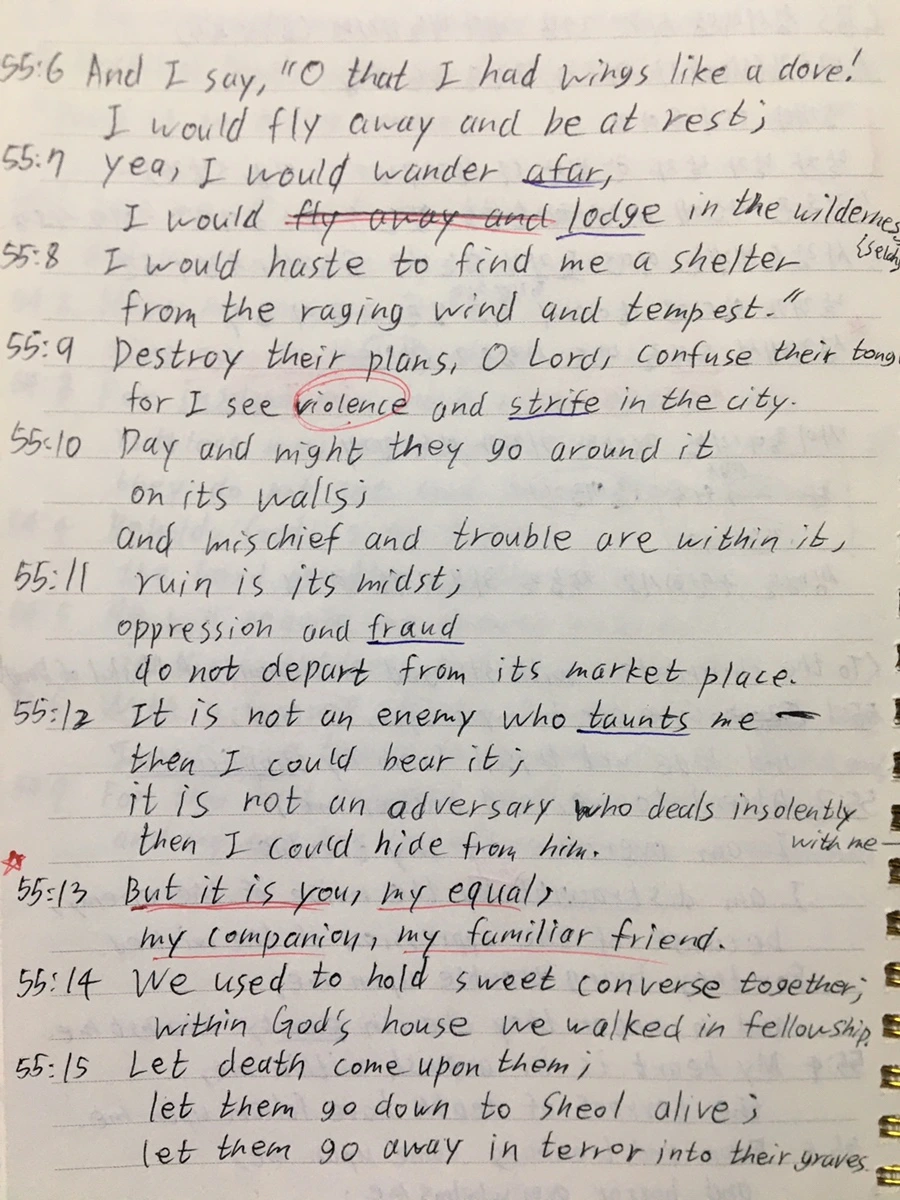 55:6 And I say, "O that I had wings like a dove!
I would fly away and be at rest;
55:7 yea, I would wander afar,
I would fly away and lodge in the wilderness
{selah}
55:8 I would haste to find me a shelter
from the raging wind and tempest."
55:9 Destroy their plans, O Lord, confuse their tong
for I see violence and strife in the city.
55:10 Day and night they go around it
on its walls;
and mischief and trouble are within it,
55:11 ruin is its midst;
oppression and fraud
do not depart from its market place.
55:12 It is not an enemy who taunts me —
then I could bear it;
it is not an adversary who deals insolently
with me —
then I could hide from him.
55:13 But it is you, my equal,
my companion, my familiar friend.
55:14 We used to hold sweet converse together;
within God's house we walked in fellowship.
55:15 Let death come upon them;
let them go down to Sheol alive;
let them go away in terror into their graves.